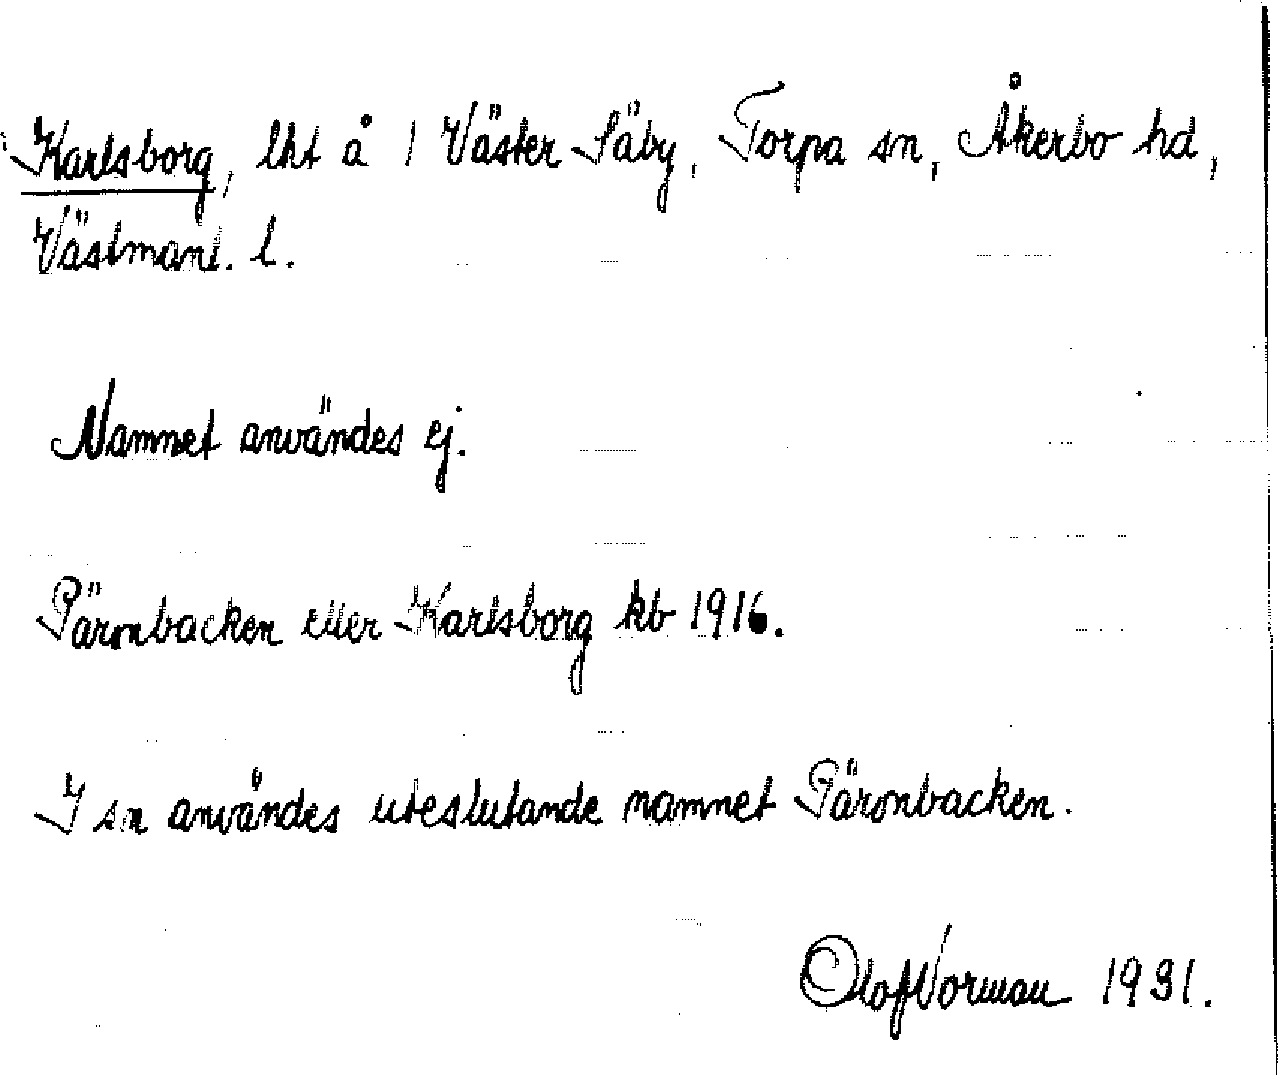 Karlsborg, lht å 1 Väster Säby, Torpa sn, Åkerbo hd,
Västmanl. l.
Namnet användes ej.
Päronbacken eller Karlsborg kb 1916.
I sn användes uteslutande namnet Päronbacken.
Olof Norman 1931.